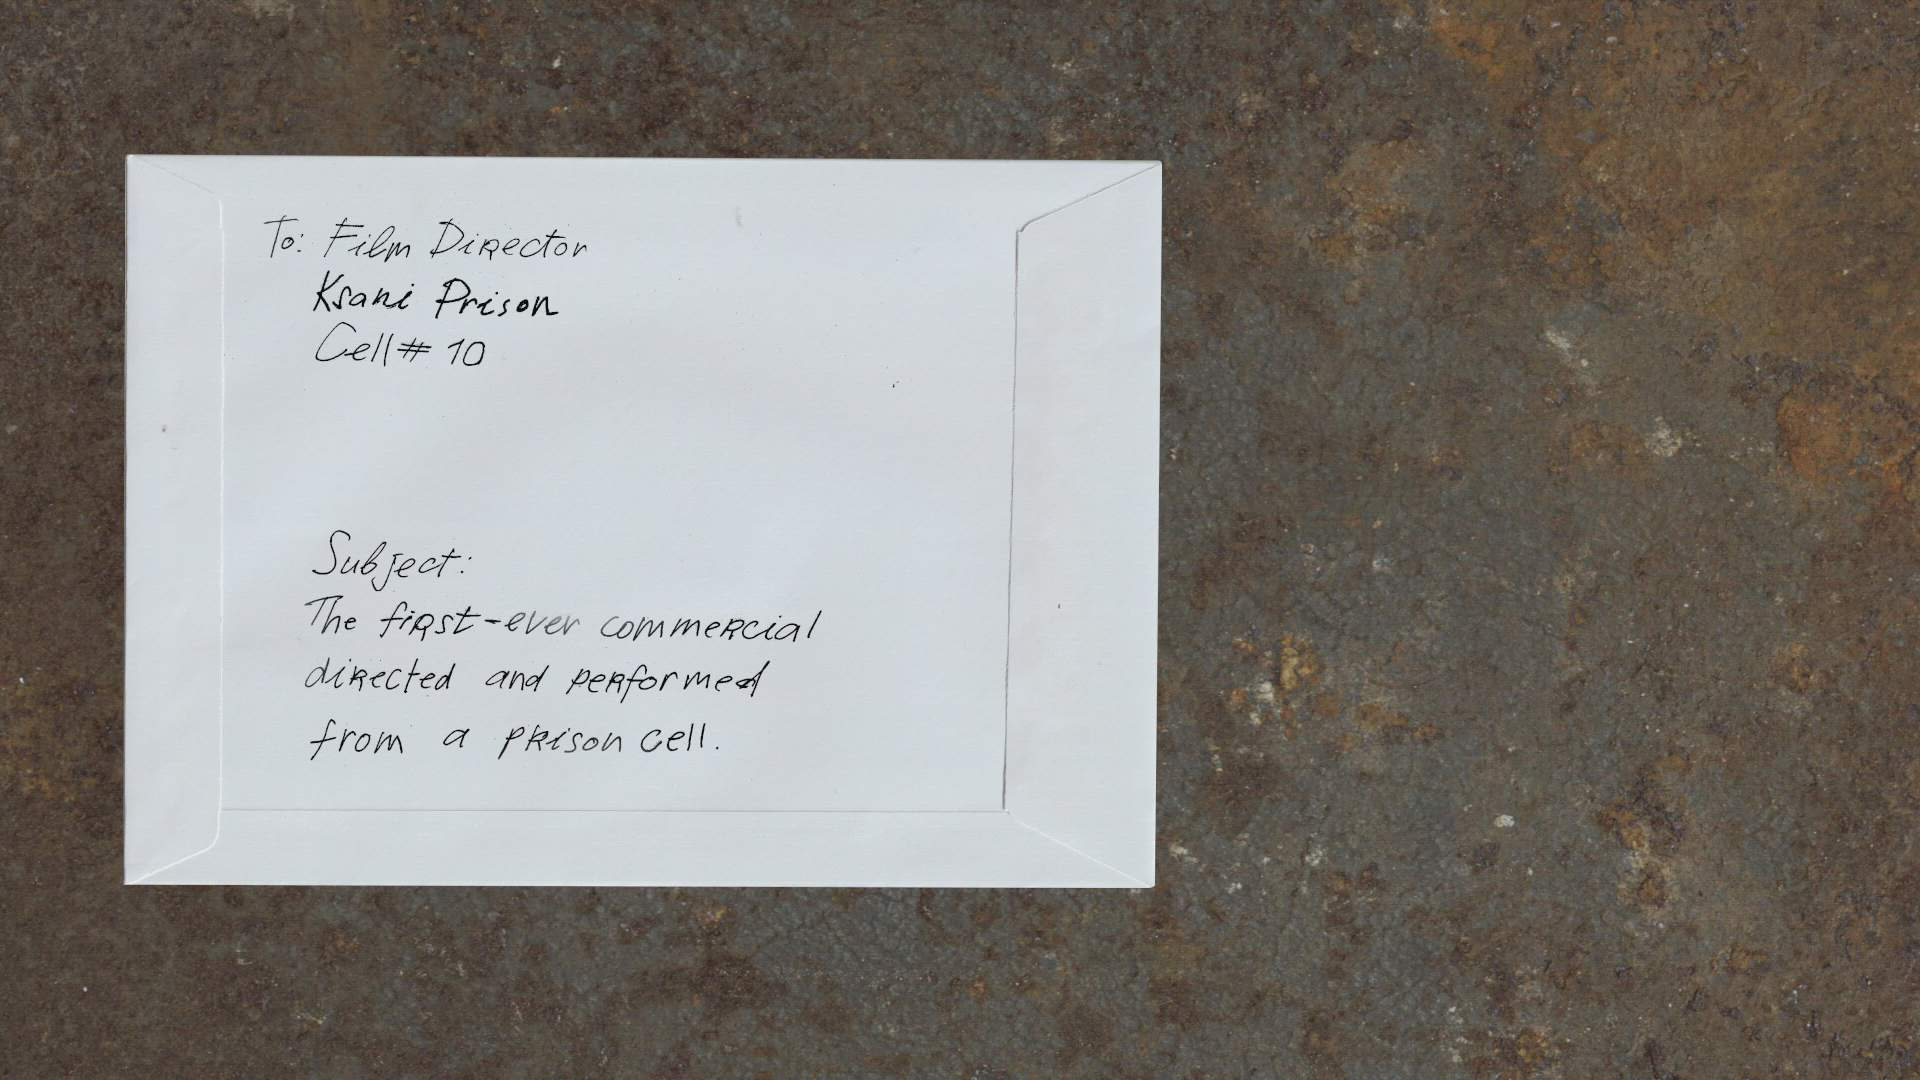 To: Film Director
Ksani Prison
Cell # 10
Subject:
The first-ever commercial
directed and performed
from a prison cell.